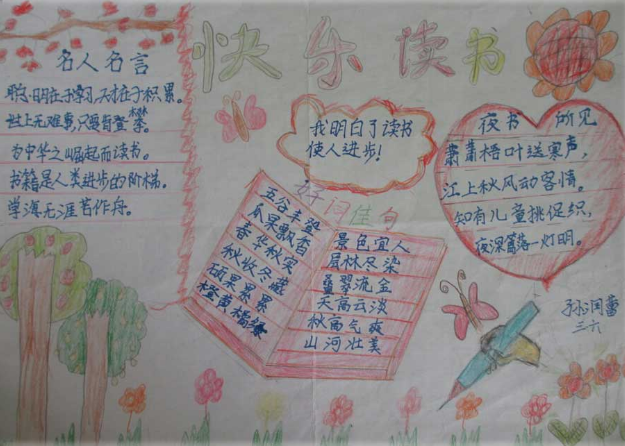 快乐读书
名人名言
聪明在于学习,天才在于积累。
世上无难事,只要肯登攀。
为中华之崛起而读书。
书籍是人类进步的阶梯。
学海无涯苦作舟。
我明白了读书
使人进步!
夜书所见
萧萧梧叶送寒声,
江上秋风动客情。
知有儿童挑促织,
夜深篱落一灯明。
好词佳句
五谷丰登
瓜果飘香
春华秋实
秋收冬藏
硕果累累
橙黄橘绿
景色宜人
层林尽染
叠翠流金
天高云淡
秋高气爽
山河壮美
三六